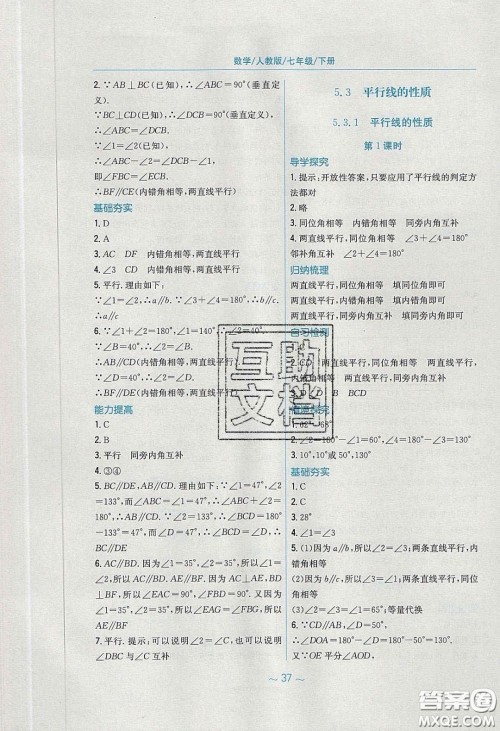 数学/人教版/七年级/下册
2. ∵AB⊥BC(已知),∴∠ABC=90°(垂直定义).
∵BC⊥CD(已知),∴∠DCB=90°(垂直定义).∴∠ABC=∠DCB.
∵∠1=∠2(已知),
∴∠ABC-∠1=∠DCB-∠2,
即∠FBC=∠ECB.
∴BF//CE(内错角相等,两直线平行)
基础夯实
1. D
2. A
3. AC DF 内错角相等,两直线平行
4. ∠3 CD 内错角相等,两直线平行
5. 平行. 理由如下:
∵∠1=∠2,∴a//b. ∵∠3+∠4=180°,∴b//c.
∴a//c
6. ∵∠1+∠2=180°,∠2=140°,
∴∠1=180°-∠2=40°.
∴AB//CD(内错角相等,两直线平行)
∴∠B=∠D=40°.
∴BF//DE(内错角相等,两直线平行)
能力提高
1. C
2. B
3. 平行 同旁内角互补
4. ③④
5. AB//CD, BC//DE. 理由如下:∵∠1=47°,∠2
=133°,而∠ABC=∠1=47°,∴∠ABC+∠2
=180°,∴AB//CD. ∵∠2=133°,∴∠BCD=∠2
=133°,而∠D=47°,∴∠BCD+∠D=180°,∴
BC//DE
6. AC//BD. 因为∠1=35°,∠2=35°,所以∠1=
∠2, 所以AC//BD. 又因为AC⊥AE, BD
⊥BF, 所以∠EAC=∠FBD=90°. 又因为
∠1=35°,∠2=35°,所以∠EAG=∠FBG, 所以
AE//BF
7. 平行. 提示: 可以说明∠2=∠3, 也可以说明
∠DBC与∠C互补
5.3 平行线的性质
5.3.1 平行线的性质
第1课时
导学探究
1. 提示:开放性答案,只要应用了平行线的判定方
法都对
2. 略
3. 同位角相等 内错角相等 同旁内角互补
4. 两直线平行,同位角相等 ∠2+∠4=180°
邻补角互补 ∠3+∠4=180°
归纳梳理
两直线平行,同位角相等 填同位角即可
两直线平行,内错角相等 填内错角即可
两直线平行,同旁内角互补
自习检测
基础夯实
1. C
2. C
3. 28°
4. ∠1=∠3
5. (1)因为a//b,所以∠2=∠3;两条直线平行,内
错角相等
(2)因为a//b,所以∠2=∠3;两条直线平行,同
位角相等
(3)∠2+∠3=180°;等量代换
6. ∵OD//AB,∠D=50°,
∴∠DOA=180°-∠D=180°-50°=130°.
又∵OE平分∠AOD,
~ 37 ~
互助
文档
答案圈
MXQE.COM